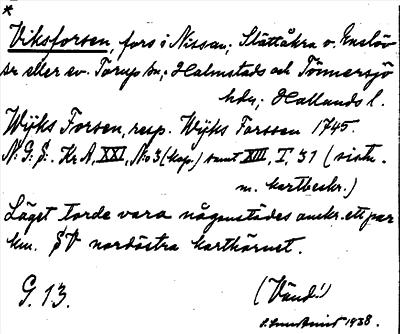 *
Viksforsen, fors i Nissan; Slättåkra o. Enslöv
snr eller ev. Torup sn; Halmstads och Tönnersjö
hdr; Hallands l.
Wijks Forsen, resp. Wijks Farssen 1745.
N:o G:o S:o. Kr A, XXI, No 3 (kop.) samt XIII, I, 31 (sistn.
m. kartbeskr.)
Läget torde vara någonstädes omkr. ett par
km. SV nordöstra karthörnet.
G. 13. (Vänd!)
1938.